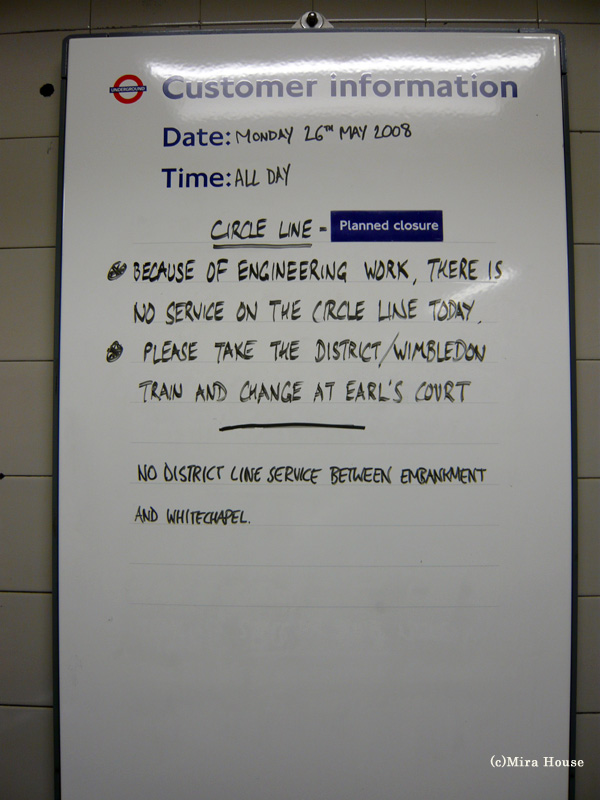 UNDERGROUND
Customer information
Date: MONDAY 26TH MAY 2008
Time: ALL DAY
CIRCLE LINE - Planned closure
BECAUSE OF ENGINEERING WORK, THERE IS
NO SERVICE ON THE CIRCLE LINE TODAY.
PLEASE TAKE THE DISTRICT/WIMBLEDON
TRAIN AND CHANGE AT EARL'S COURT
NO DISTRICT LINE SERVICE BETWEEN EMBANKMENT
AND WHITECHAPEL.
(c)Mira House